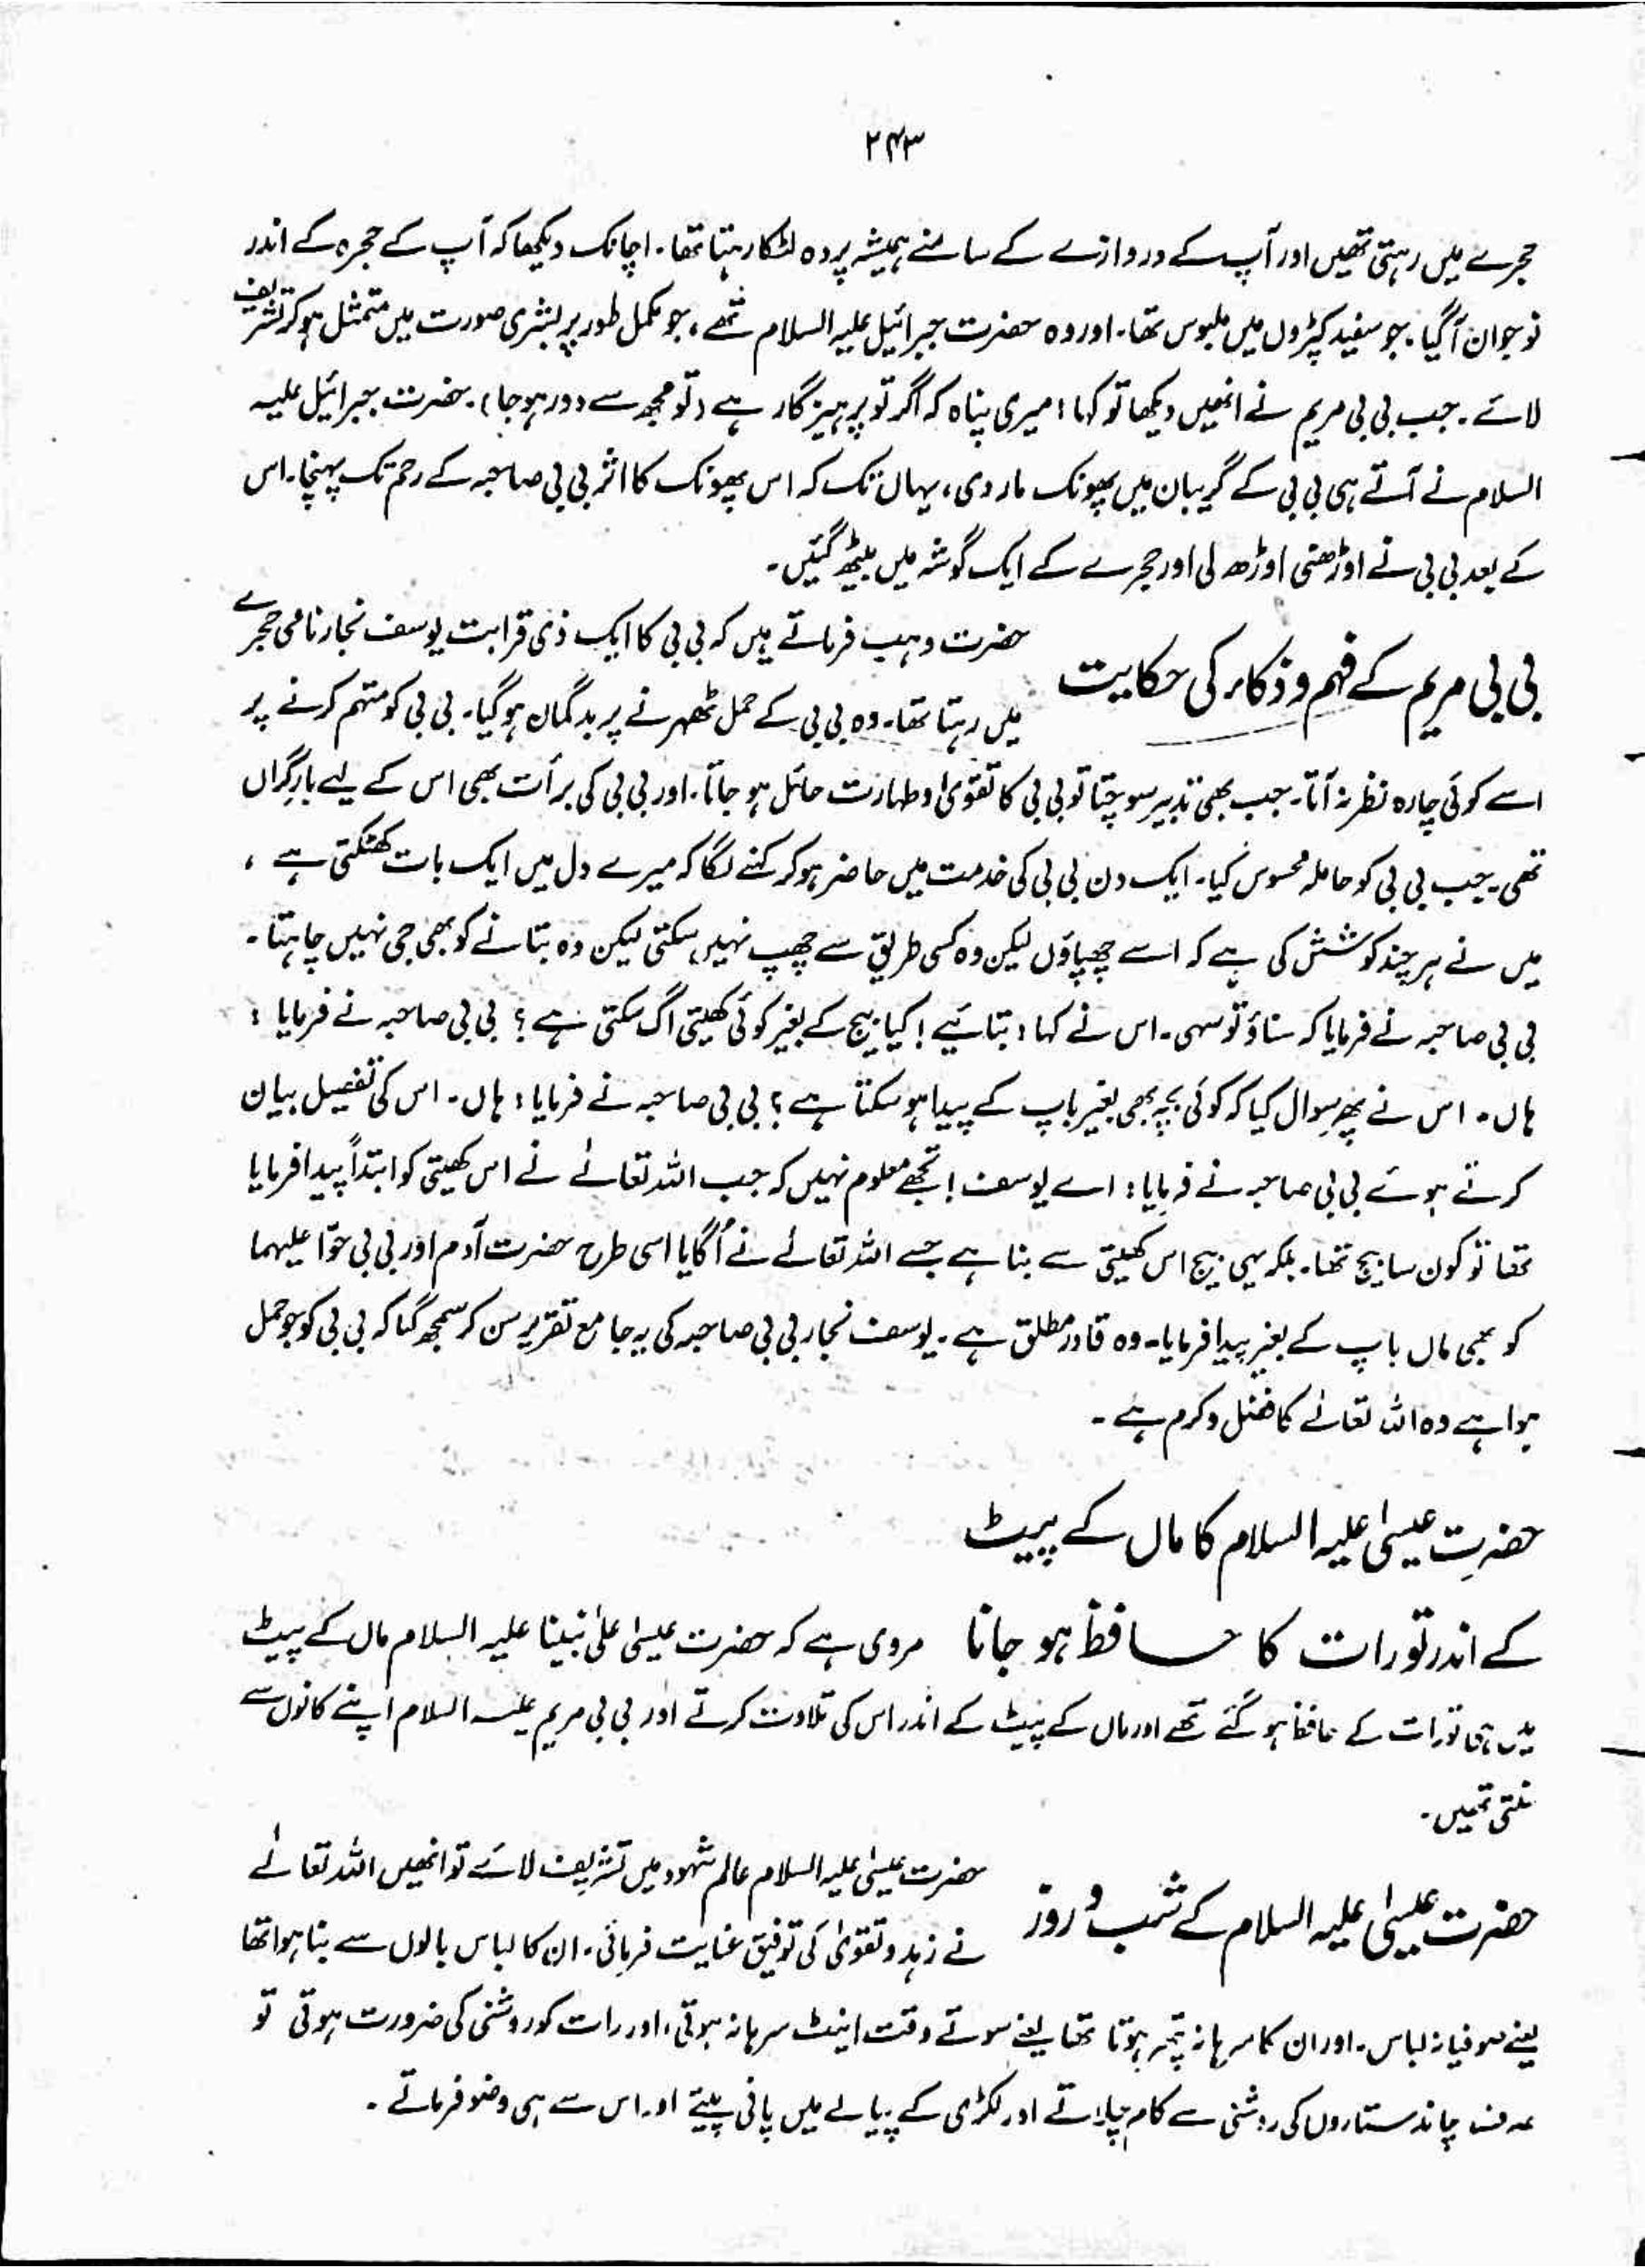 ۲۴۳
حجرے میں رہتی تھیں اور آپ کے دروازے کے سامنے ہمیشہ پردہ لٹکا رہتا تھا۔ اچانک دیکھا کہ آپ کے حجرہ کے اندر
نوجوان آگیا۔ جو سفید کپڑوں میں ملبوس تھا۔ اور وہ حضرت جبرائیل علیہ السلام تھے، جو مکمل طور پر بشری صورت میں متمثل ہو کر تشریف
لائے۔ جب بی بی مریم نے انھیں دیکھا تو کہا: میری پناہ کہ اگر تو پرہیزگار ہے (تو مجھ سے دور ہوجا)۔ حضرت جبرائیل علیہ
السلام نے آتے ہی بی بی کے گریبان میں پھونک مار دی، یہاں تک کہ اس پھونک کا اثر بی بی صاحبہ کے رحم تک پہنچا۔ اس
کے بعد بی بی نے اوڑھنی اوڑھ لی اور حجرے کے ایک گوشہ میں بیٹھ گئیں۔
بی بی مریم کے فہم و ذکاء کی حکایت
حضرت وہب فرماتے ہیں کہ بی بی کا ایک ذی قرابت یوسف نجار نامی حجرے
میں رہتا تھا۔ وہ بی بی کے حمل ٹھہرنے پر بدگمان ہوگیا۔ بی بی کو متہم کرنے پر
اسے کوئی چارہ نظر نہ آتا۔ جب بھی تدبیر سوچتا تو بی بی کا تقویٰ و طہارت حائل ہو جاتا۔ اور بی بی کی برأت بھی اس کے لیے بارِ گراں
تھی۔ جب بی بی کو حاملہ محسوس کیا۔ ایک دن بی بی کی خدمت میں حاضر ہو کر کہنے لگا کہ میرے دل میں ایک بات کھٹکتی ہے ،
میں نے ہر چند کوشش کی ہے کہ اسے چھپاؤں لیکن وہ کسی طریق سے چھپ نہیں سکتی لیکن وہ بتانے کو بھی جی نہیں چاہتا۔
بی بی صاحبہ نے فرمایا کہ سناؤ تو سہی۔ اس نے کہا: بتائیے! کیا بیج کے بغیر کوئی کھیتی اگ سکتی ہے؟ بی بی صاحبہ نے فرمایا :
ہاں۔ اس نے پھر سوال کیا کہ کوئی بچہ بھی بغیر باپ کے پیدا ہو سکتا ہے؟ بی بی صاحبہ نے فرمایا: ہاں۔ اس کی تفصیل بیان
کرتے ہوئے بی بی صاحبہ نے فرمایا: اے یوسف! تجھے معلوم نہیں کہ جب اللہ تعالےٰ نے اس کھیتی کو ابتداً پیدا فرمایا
تھا تو کون سا بیج تھا۔ بلکہ یہی بیج اس کھیتی سے بنا ہے جسے اللہ تعالےٰ نے اُگایا اسی طرح حضرت آدم اور بی بی حوّا علیہما
کو بھی ماں باپ کے بغیر پیدا فرمایا۔ وہ قادرِ مطلق ہے۔ یوسف نجار بی بی صاحبہ کی یہ جامع تقریر سن کر سمجھ گیا کہ بی بی کو جو حمل
ہوا ہے وہ اللہ تعالےٰ کا فضل و کرم ہے۔
حضرتِ عیسیٰ علیہ السلام کا ماں کے پیٹ
کے اندر تورات کا حافظ ہو جانا
مروی ہے کہ حضرت عیسیٰ علیٰ نبینا علیہ السلام ماں کے پیٹ
میں ہی تورات کے حافظ ہو گئے تھے اور ماں کے پیٹ کے اندر اس کی تلاوت کرتے اور بی بی مریم علیہ السلام اپنے کانوں سے
سنتی تھیں۔
حضرت عیسیٰ علیہ السلام کے شب و روز
حضرت عیسیٰ علیہ السلام عالم شہود میں تشریف لائے تو انھیں اللہ تعالےٰ
نے زہد و تقویٰ کی توفیق عنایت فرمائی۔ ان کا لباس بالوں سے بنا ہوا تھا
یعنے صوفیانہ لباس۔ اور ان کا سرہانہ پتھر ہوتا تھا یعنے سوتے وقت اینٹ سرہانہ ہوتی، اور رات کو روشنی کی ضرورت ہوتی تو
صرف چاند ستاروں کی روشنی سے کام چلاتے اور لکڑی کے پیالے میں پانی پیتے اور اس سے ہی وضو فرماتے۔